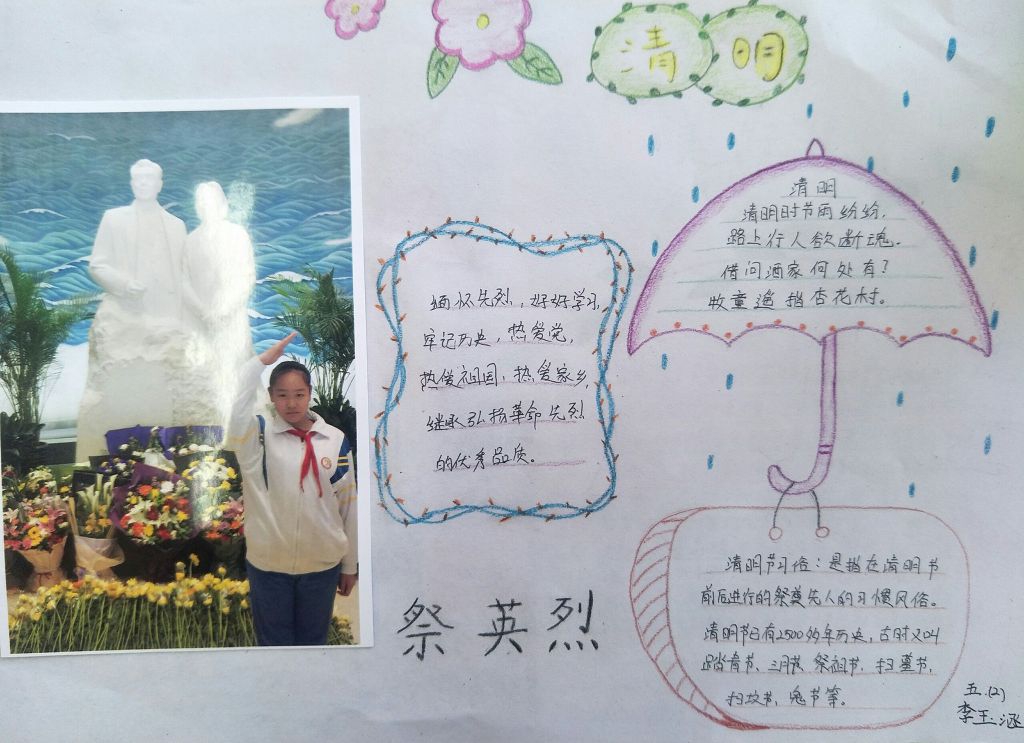 清明
清明
清明时节雨纷纷,
路上行人欲断魂。
借问酒家何处有?
牧童遥指杏花村。
缅怀先烈,好好学习,
牢记历史,热爱党,
热爱祖国,热爱家乡,
继承弘扬革命先烈
的优秀品质。
祭英烈
清明节习俗:是指在清明节
前后进行的祭奠先人的习惯风俗。
清明节已有2500多年历史,古时又叫
踏青节、三月节、祭祖节、扫墓节、
扫坟节、鬼节等。
五.(2)
李玉涵